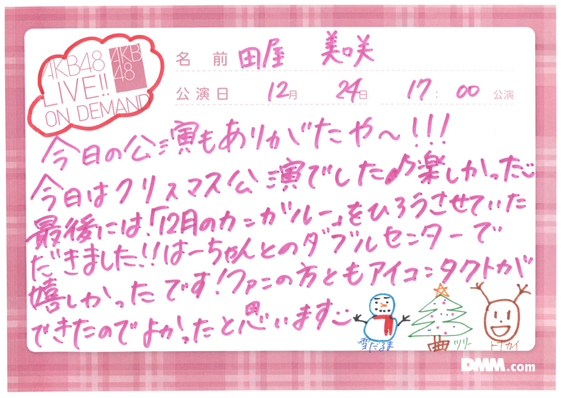 AKB48
LIVE!!
ON DEMAND
AKB
48
名前 田屋 美咲
公演日 12月 24日 17:00 公演
今日の公演もありがたや〜!!!
今日はクリスマス公演でした♪楽しかった
最後には、「12月のカンガルー」をひろうさせていた
だきました!!はーちゃんとのダブルセンターで
嬉しかったです!ファンの方ともアイコンタクトが
できたのでよかったと思います
雪だるま ツリー トナカイ
DMM.com